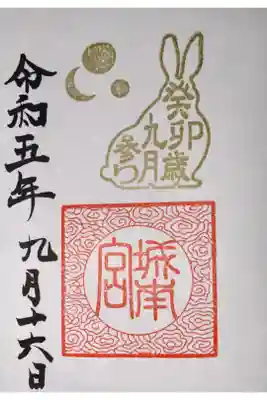 癸卯歳
九月
参り
城南宮
令和五年九月十六日